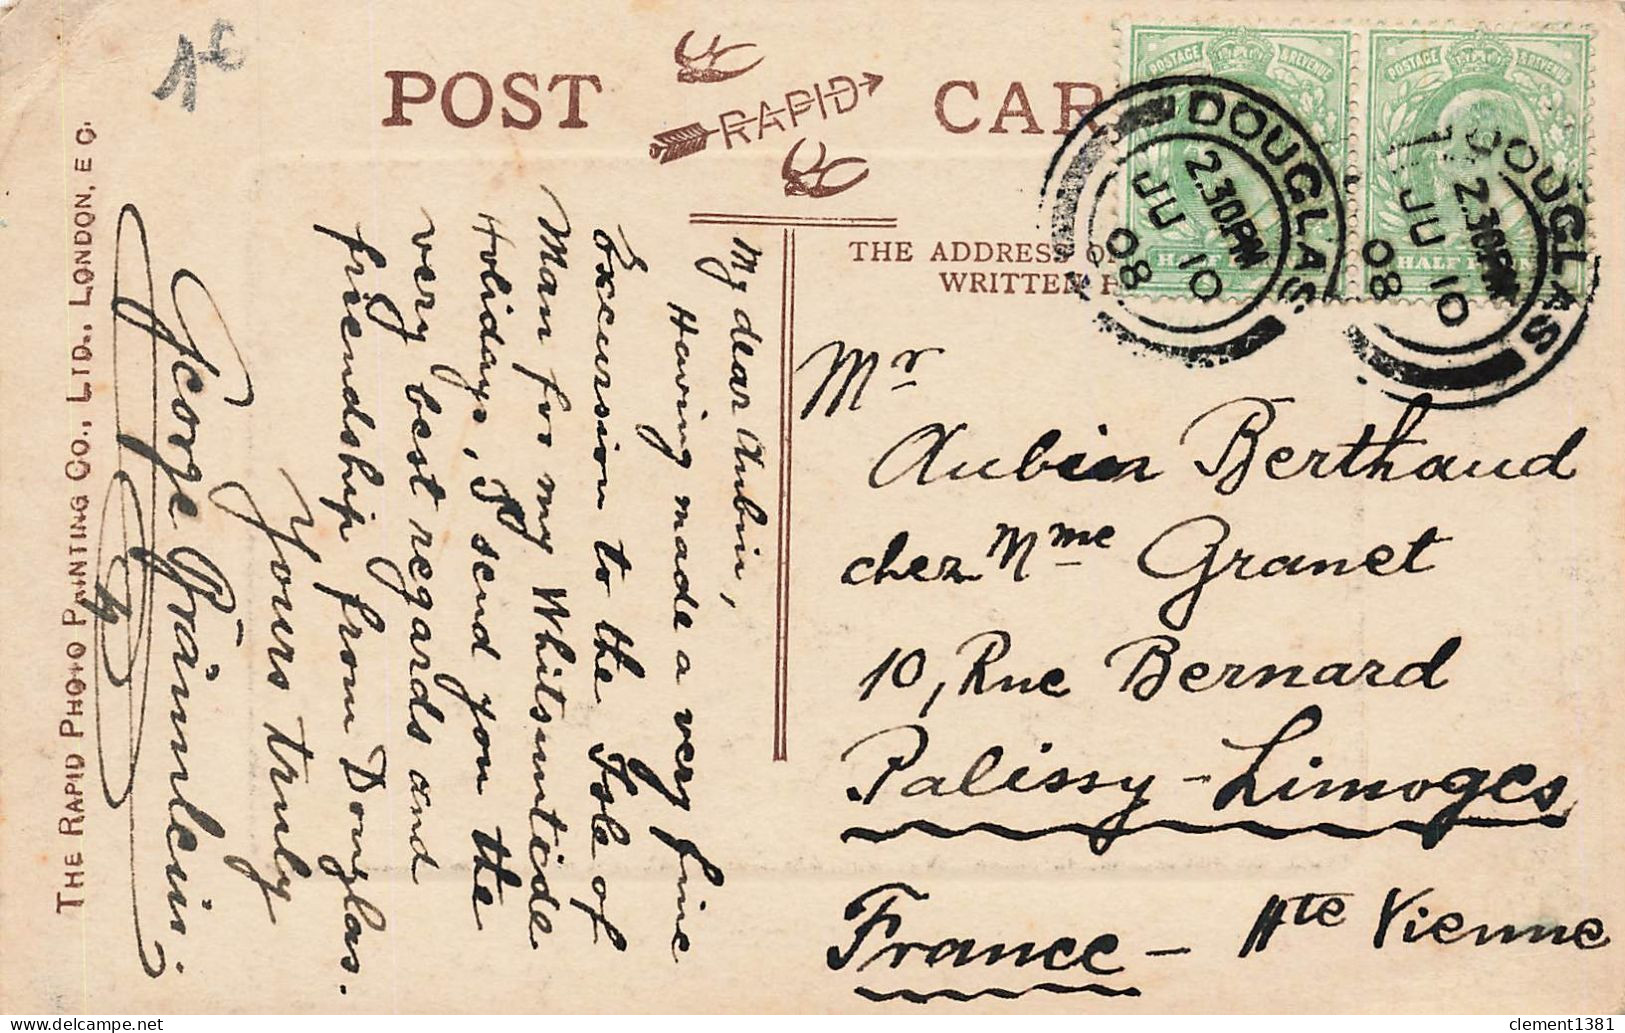 1€
POST CAR
RAPID
THE ADDRESS O
WRITTEN H
POSTAGE & REVENUE
POSTAGE & REVENUE
DOUGLAS
2.30PM
JU 10
08
DOUGLAS
2.30PM
JU 10
08
Mr
Aubin Berthaud
chez Mme Granet
10, Rue Bernard
Palissy - Limoges
France - Hte Vienne
My dear Aubin,
Having made a very fine
Excursion to the Isle of
Man for my Whitsuntide
Holidays, I send you the
very best regards and
friendship from Douglas.
Yours truly
George Bräunlein.
THE RAPID PHOTO PRINTING CO., LTD., LONDON, E C.
delcampe.net
clement1381